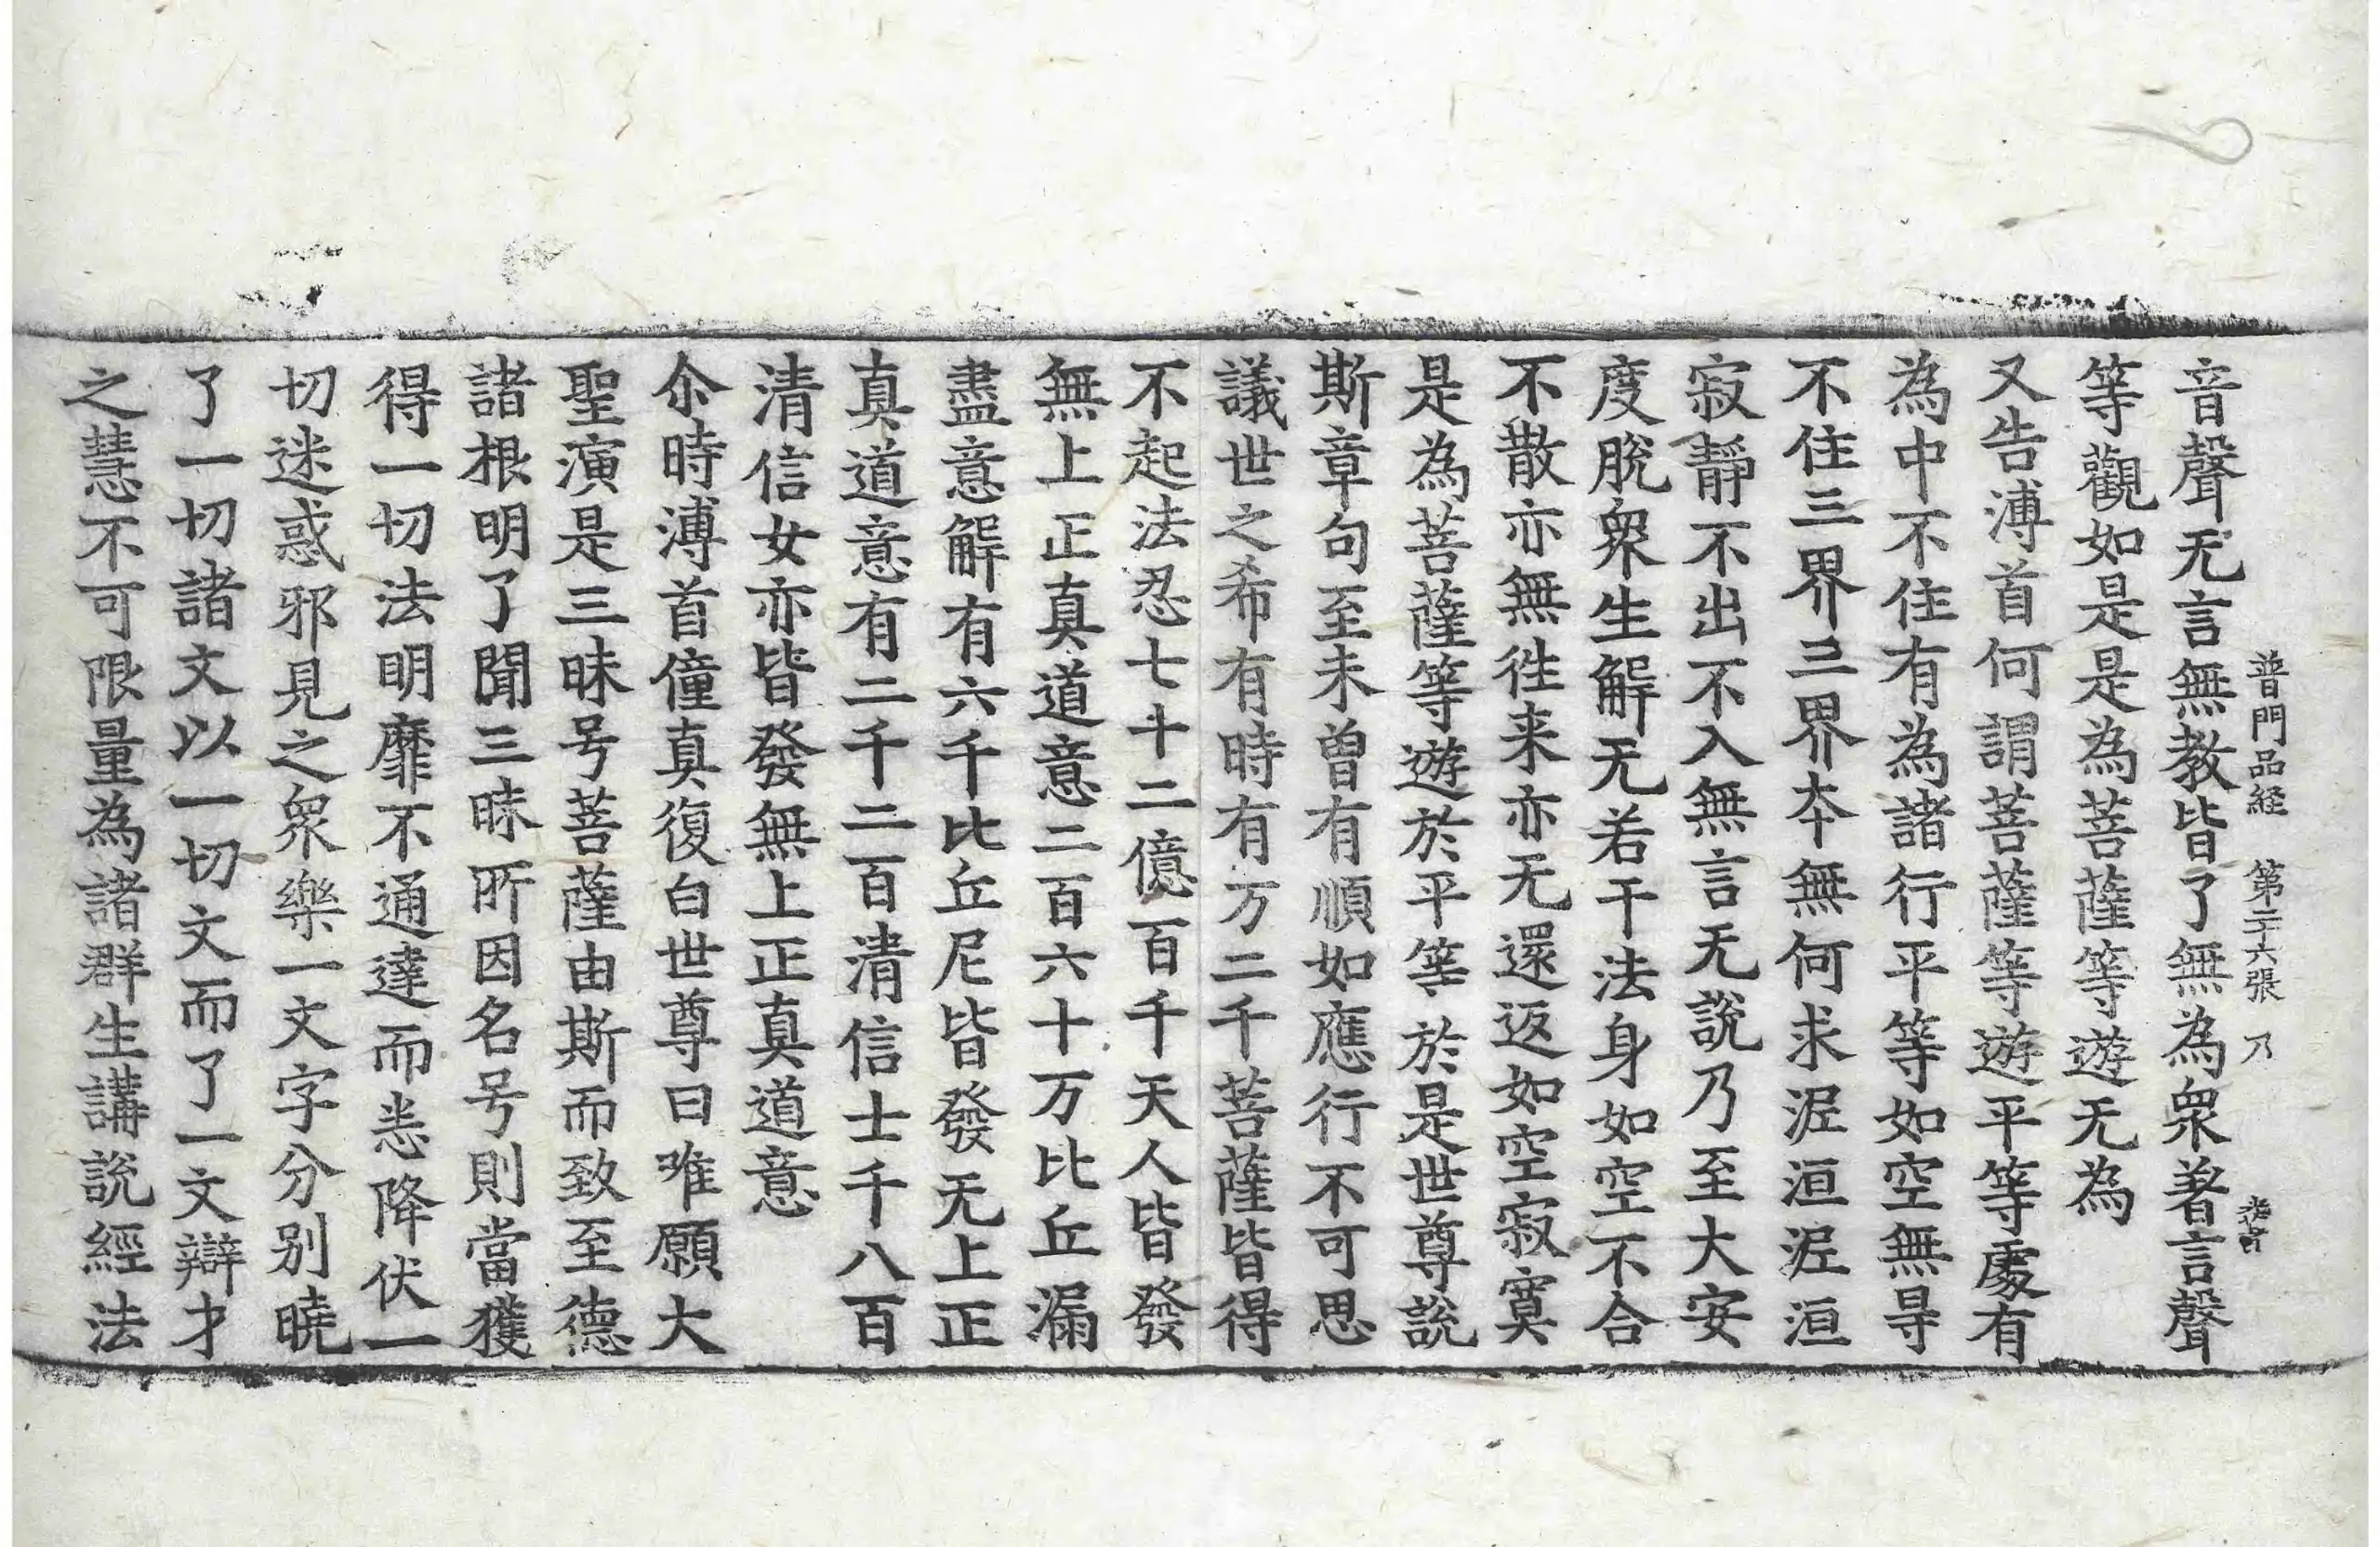 普門品経 第二十六張 乃
音聲无言無教皆了無為衆著言聲
等觀如是是為菩薩等遊无為
又告溥首何謂菩薩等遊平等處有
為中不住有為諸行平等如空無㝵
不住三界三界本無何求泥洹泥洹
寂靜不出不入無言无說乃至大安
度脫衆生解无若干法身如空不合
不散亦無徃来亦无還返如空寂寞
是為菩薩等遊於平等於是世尊說
斯章句至未曾有順如應行不可思
議世之希有時有万二千菩薩皆得
不起法忍七十二億百千天人皆發
無上正真道意二百六十万比丘漏
盡意解有六千比丘尼皆發无上正
真道意有二千二百清信士千八百
清信女亦皆發無上正真道意
尒時溥首僮真復白世尊曰唯願大
聖演是三昧号菩薩由斯而致至德
諸根明了聞三昧所因名号則當獲
得一切法明靡不通達而悉降伏一
切迷惑邪見之衆樂一文字分别曉
了一切諸文以一切文而了一文辯才
之慧不可限量為諸群生講說經法